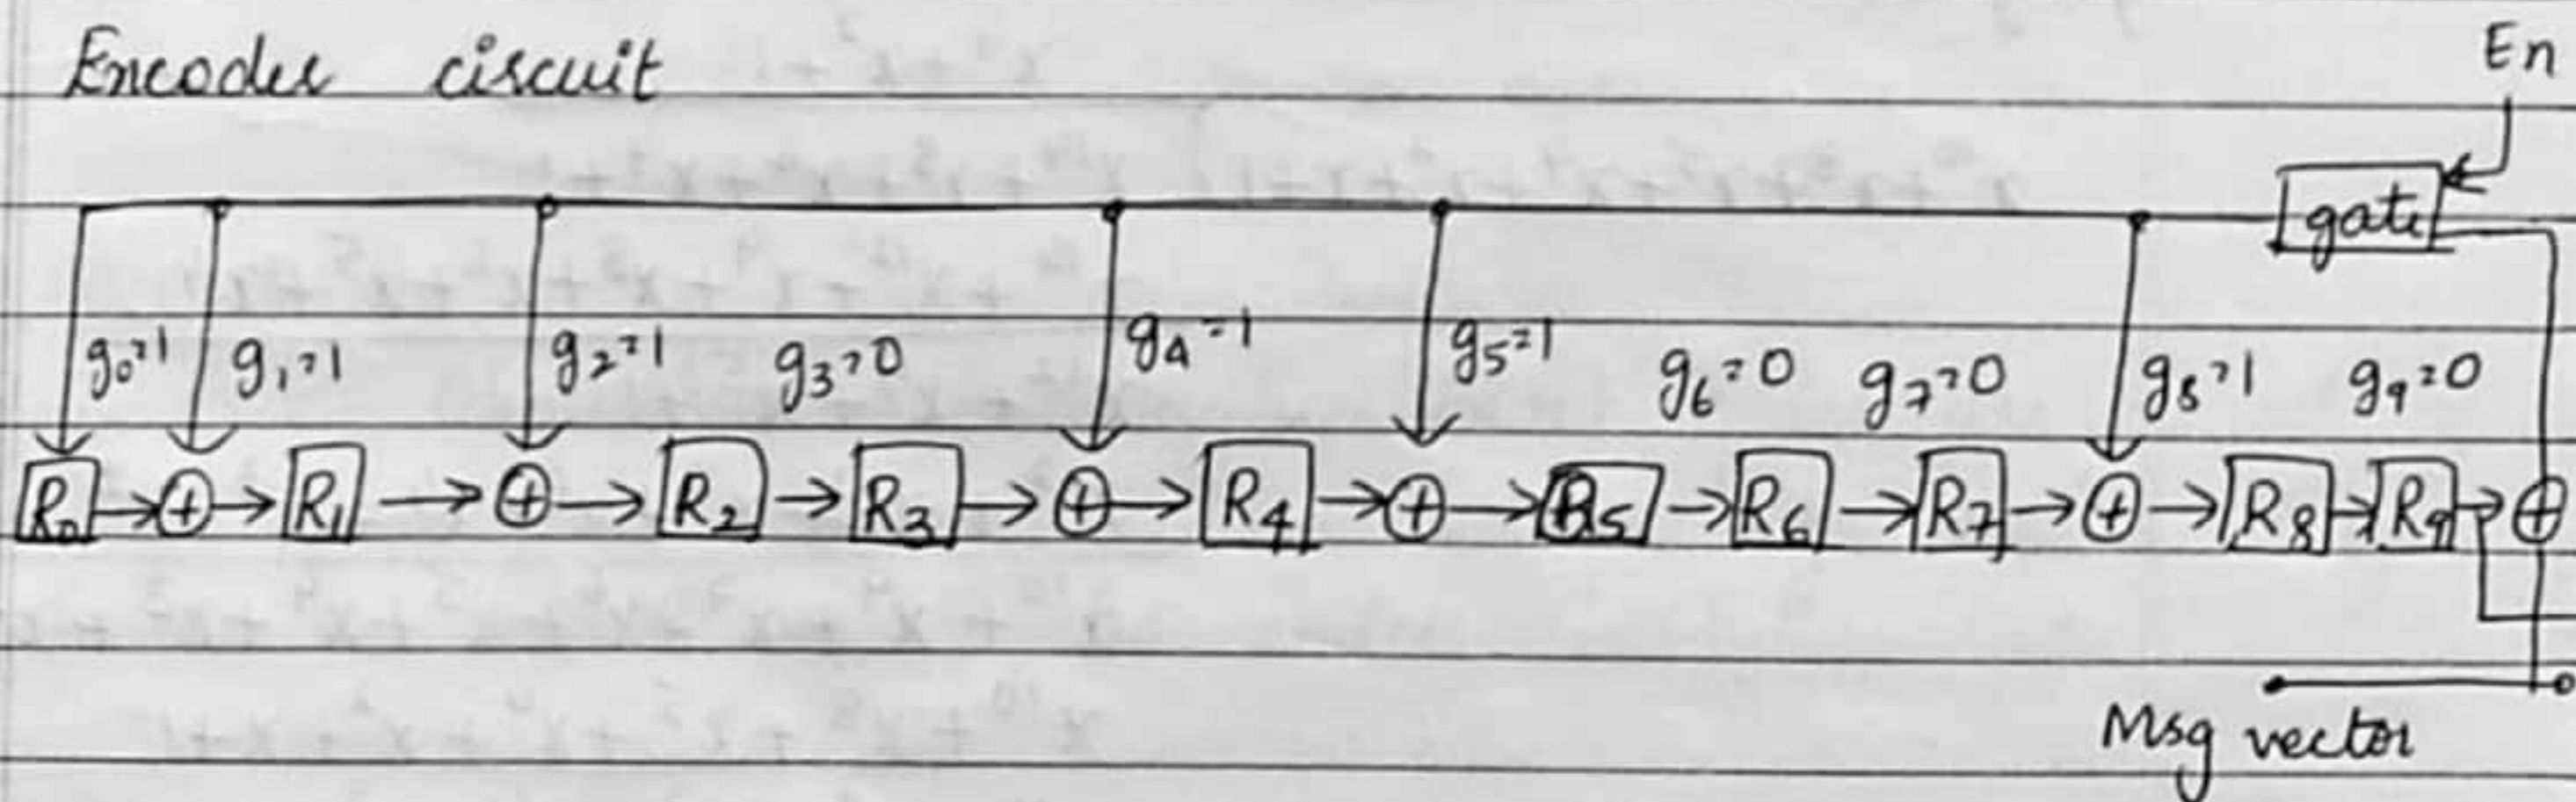 Encoder circuit
En
gate
g₀=1 g₁=1 g₂=1 g₃=0 g₄=1 g₅=1 g₆=0 g₇=0 g₈=1 g₉=0
R₀ → ⊕ → R₁ → ⊕ → R₂ → R₃ → ⊕ → R₄ → ⊕ → R₅ → R₆ → R₇ → ⊕ → R₈ → R₉ → ⊕
Msg vector